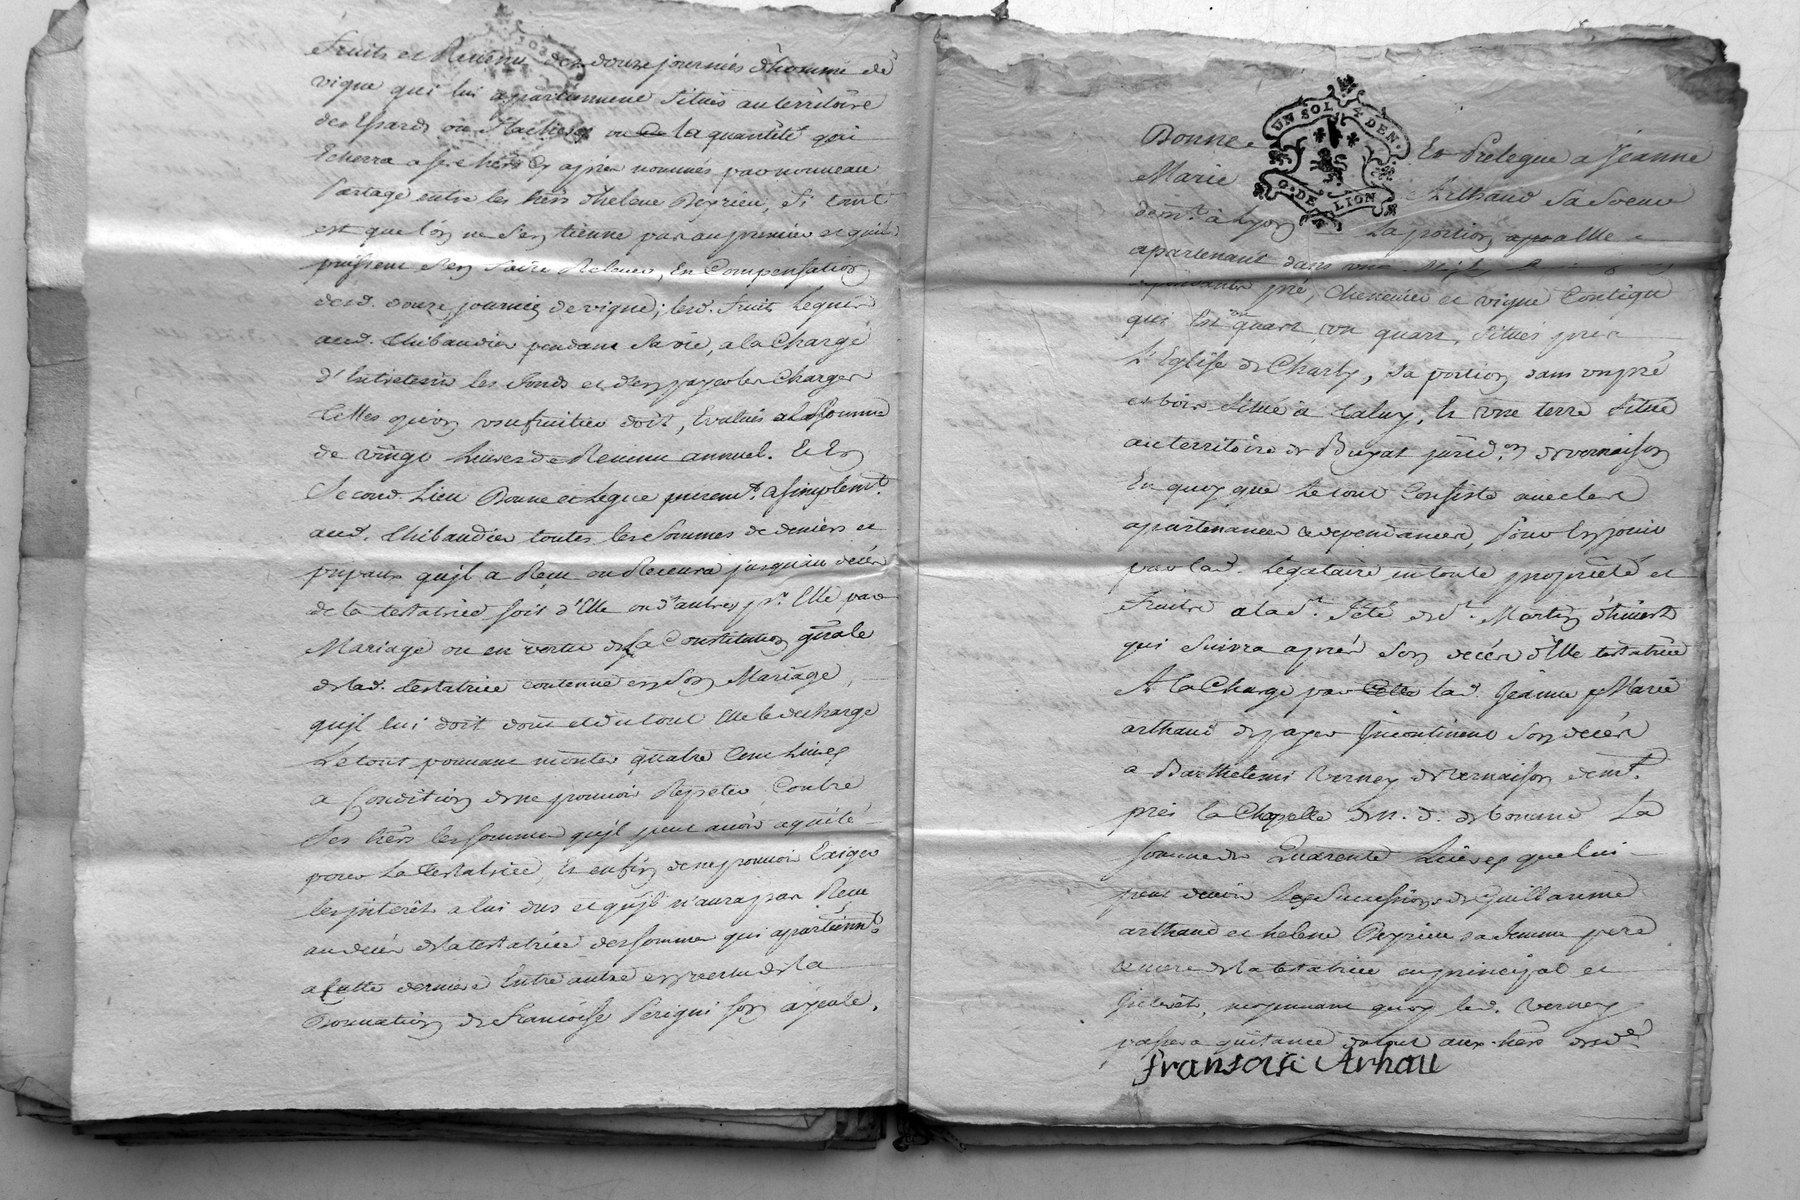 fruits et Revenu des douze journées d'homme de
vigne qui lui apartiennent Situés au territoire
des Essards ou ou la quantité qui
Echerra a ses hers cy après nommés par nouveau
Partage entre les hers d'helene Peyrieu, Si tant
est que l'on ne s'en tienne pas au premier et quils
puissent s'en faire Relever, En Compensation
desd. douze journées de vigne; lesd. fruits Legués
aud. Thibaudier pendant Sa vie, a la Charge
d'Entretenir les fonds et d'en payer les Charges
telles qu'un usufruitier doit, Evalués a la Somme
de vingt Livres de Revenu annuel. Et En
Second Lieu Donne et Legue purem.t & simplem.t
aud. Thibaudier toutes les Sommes de deniers et
qu'il a Reçu ou Recevra jusqu'au décès
de la testatrice soit d'Elle ou d'autres p.r Elle par
Mariage ou en vertu de la Constitution gñale
de lad. testatrice contenue en Son Mariage,
qu'il lui doit dont et du tout Elle le decharge
Le tout pouvant monter quatre Cent Livres
a Condition de ne pouvoir Repeter Contre
Ses hers les sommes qu'il peut avoir aquité
pour La testatrice, Et enfin de ne pouvoir Exiger
les interêts a lui dus et qu'il n'aura pas Reçu
au décès de la testatrice des sommes qui apartienn.t
a cette derniere Entre autre en vertu de la
Donnation de Francoise Perigni son ayeule.
UN SOL 4 DEN.
G. DE LION
Donne Et Prelegue a Jeanne
Marie Arthaud Sa Soeur
dem.t à Lyon La portion a elle
apartenant dans
pré, cheneviere et vigne Contigu
qui Est un quart, un quart, Situés près
L'Eglise de Charly, Sa portion dans un pré
et bois Situé à Taluy, Et une terre Situé
au territoire de Buyat jurid.on de vernaison
En quoy que Le tout Consiste avec leurs
apartenances & dependances, Pour En jouir
par lad. Legataire en toute proprieté et
fruits a la d.e fête de S.t Martin d'hivert
qui Suivra après Son décès d'Elle testatrice
A la Charge par lad. Jeanne Marie
arthaud de payer Incontinent Son décès
a Barthelemi Verney de vernaison dem.t
près la Chapelle de n. d. de bonne La
Somme de Quarente Livres que lui
peut devoir La Succession de Guillaume
arthaud et helene Peyrieu sa femme pere
& mere de la testatrice en principal et
Interêt, moyennant quoy led. Verney
passera quittance du tout aux hers de
fransoise Arhau